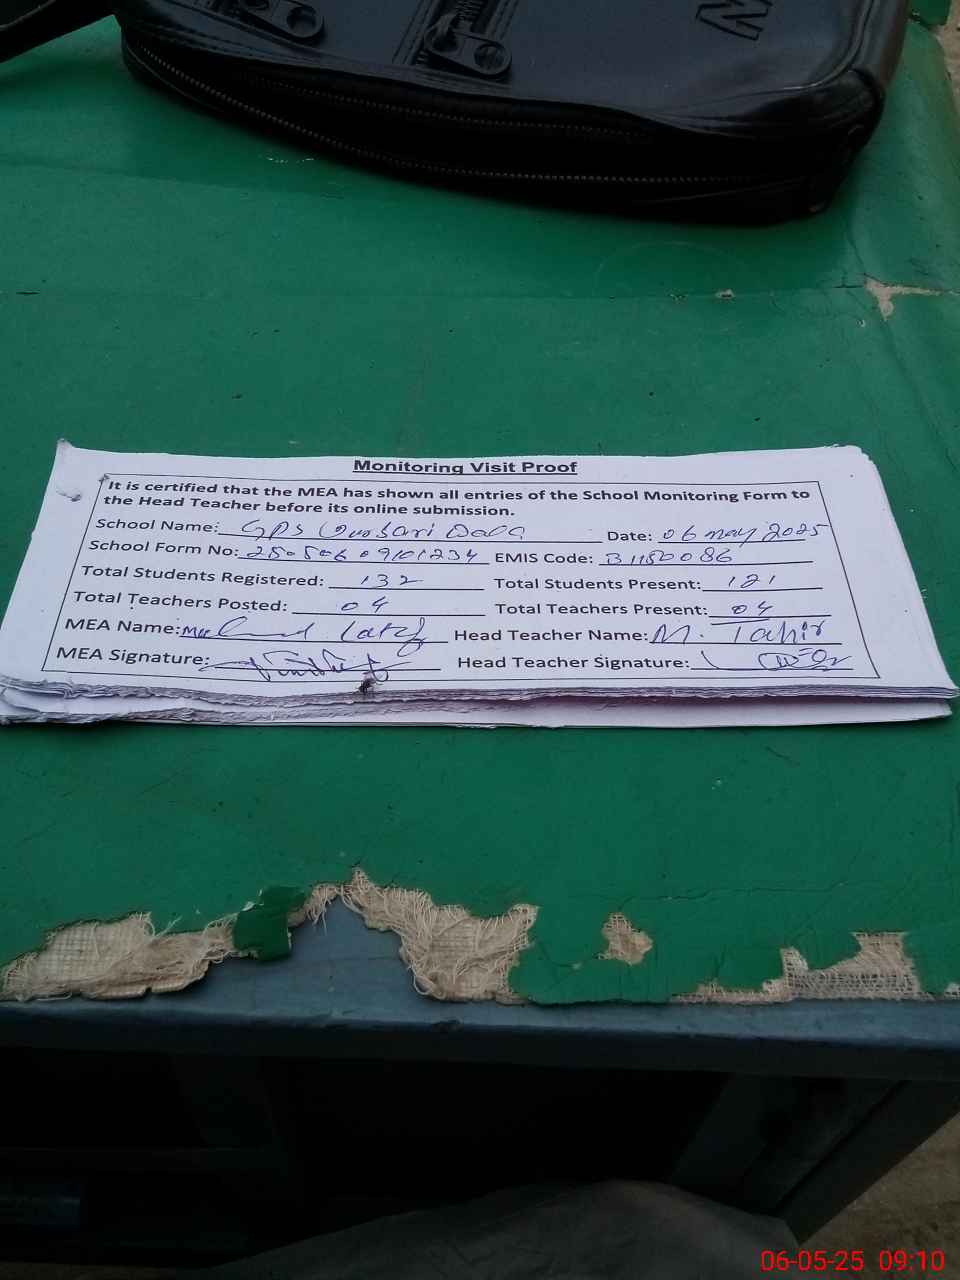 Monitoring Visit Proof
It is certified that the MEA has shown all entries of the School Monitoring Form to
the Head Teacher before its online submission.
School Name: GPS Date: 06 may 2025
School Form No: EMIS Code:
Total Students Registered: 132 Total Students Present: 121
Total Teachers Posted: 04 Total Teachers Present: 04
MEA Name: Latif Head Teacher Name: M. Tahir
MEA Signature: Head Teacher Signature:
06-05-25 09:10